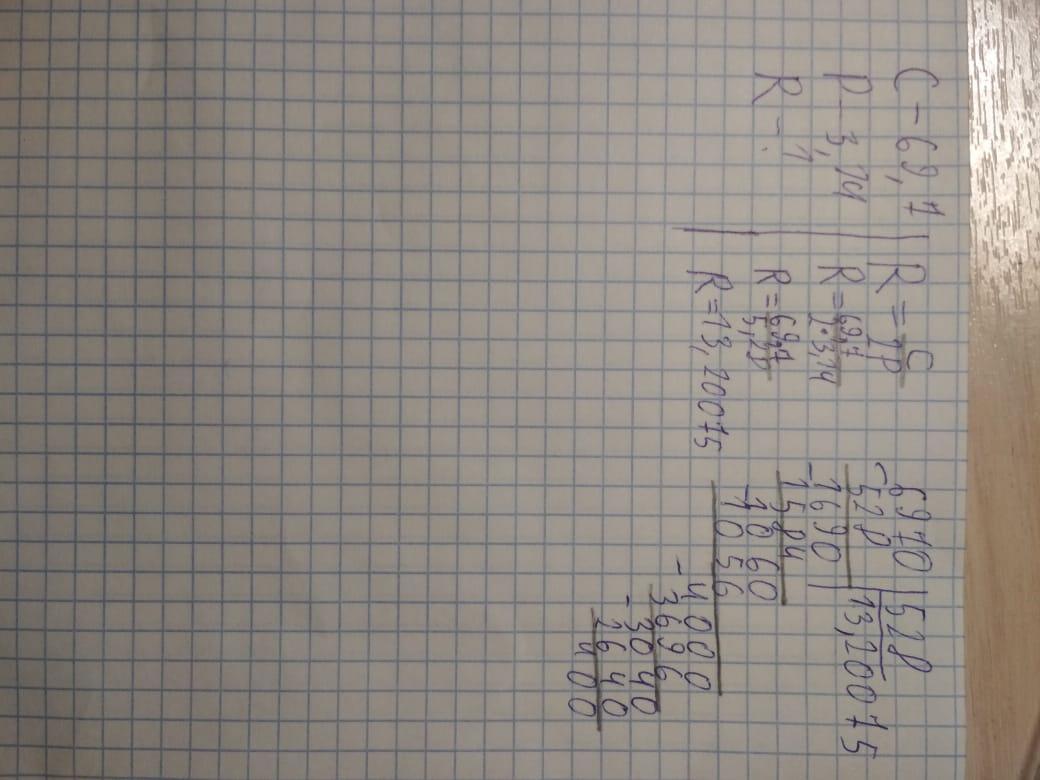 C – 69,7
P – 3,14
R – ?
R = C/2P
R = 69,7/2·3,14
R = 69,7/5,28
R = 13,20075
6970 | 528
-528 | 13,20075
1690
-1584
1060
-1056
4000
-3696
3040
-2640
400